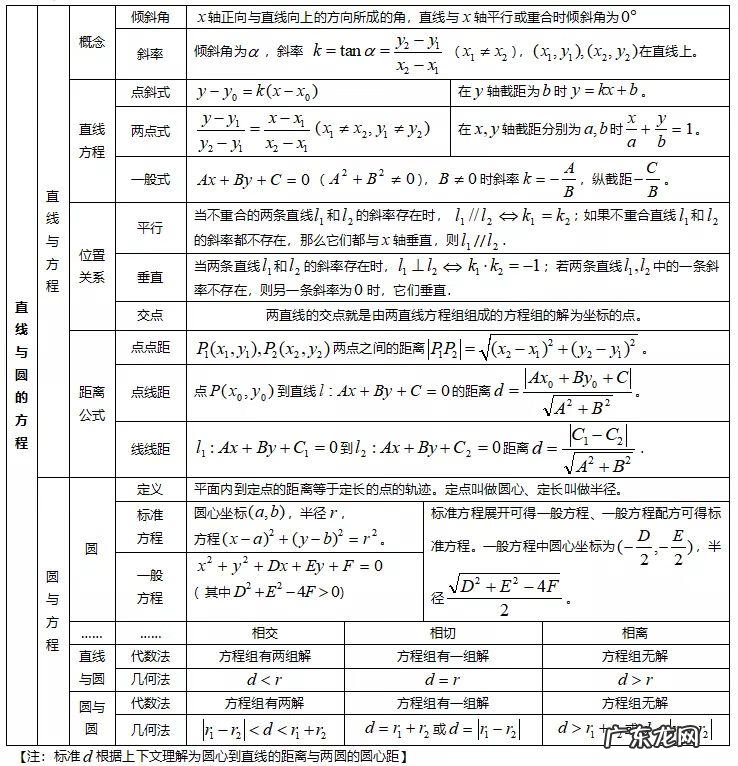 直线与圆的方程
直线与方程
概念
倾斜角
x轴正向与直线向上的方向所成的角，直线与x轴平行或重合时倾斜角为0°
斜率
倾斜角为α，斜率 k=tanα=(y₂−y₁)/(x₂−x₁)（x₁≠x₂），(x₁,y₁),(x₂,y₂)在直线上。
直线方程
点斜式
y−y₀=k(x−x₀)
在y轴截距为b时y=kx+b。
两点式
(y−y₁)/(y₂−y₁)=(x−x₁)/(x₂−x₁)(x₁≠x₂,y₁≠y₂)
在x,y轴截距分别为a,b时x/a+y/b=1。
一般式
Ax+By+C=0（A²+B²≠0），B≠0时斜率k=−A/B，纵截距−C/B。
位置关系
平行
当不重合的两条直线l₁和l₂的斜率存在时，l₁//l₂⇔k₁=k₂；如果不重合直线l₁和l₂
的斜率都不存在，那么它们都与x轴垂直，则l₁//l₂．
垂直
当两条直线l₁和l₂的斜率存在时，l₁⊥l₂⇔k₁·k₂=−1；若两条直线l₁,l₂中的一条斜
率不存在，则另一条斜率为0时，它们垂直．
交点
两直线的交点就是由两直线方程组组成的方程组的解为坐标的点。
距离公式
点点距
P₁(x₁,y₁),P₂(x₂,y₂)两点之间的距离|P₁P₂|=√((x₂−x₁)²+(y₂−y₁)²)。
点线距
点P(x₀,y₀)到直线l:Ax+By+C=0的距离d=|Ax₀+By₀+C|/√(A²+B²)。
线线距
l₁:Ax+By+C₁=0到l₂:Ax+By+C₂=0距离d=|C₁−C₂|/√(A²+B²)．
圆与方程
圆
定义
平面内到定点的距离等于定长的点的轨迹。定点叫做圆心、定长叫做半径。
标准方程
圆心坐标(a,b)，半径r，
方程(x−a)²+(y−b)²=r²。
标准方程展开可得一般方程、一般方程配方可得标
准方程。一般方程中圆心坐标为(−D/2,−E/2)，半
径√(D²+E²−4F)/2。
一般方程
x²+y²+Dx+Ey+F=0
(其中D²+E²−4F>0)
......
......
相交
相切
相离
直线与圆
代数法
方程组有两组解
方程组有一组解
方程组无解
几何法
d<r
d=r
d>r
圆与圆
代数法
方程组有两解
方程组有一组解
方程组无解
几何法
|r₁−r₂|<d<r₁+r₂
d=r₁+r₂或d=|r₁−r₂|
d>r₁
【注：标准d根据上下文理解为圆心到直线的距离与两圆的圆心距】
广东龙网